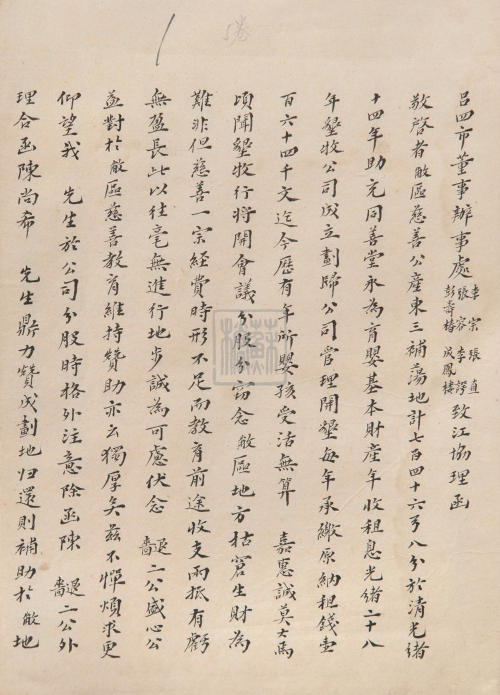 呂四市董事辦事處 李宗 張直 張容 李諤 彭壽椿 成鳳樓 致江協理函
敬啓者敝區慈善公產東三補蕩地計七百四十六弓八分於清光緒
十四年助充同善堂永為育嬰基本財產年收租息光緒二十八
年墾牧公司成立劃歸公司管理開墾每年承繳原納租錢壹
百六十四千文迄今歷有年所嬰孩受活無算 嘉惠誠莫大焉
頃聞墾牧行將開會議分股分窃念敝區地方枯窘生財為
難非但慈善一宗經費時形不足而教育前途收支兩抵有虧
無盈長此以往毫無進行地步誠為可慮伏念 退嗇二公盛心公
益對於敝區慈善教育維持贊助亦云獨厚矣茲不憚煩求更
仰望我 先生於公司分股時格外注意除函陳 退嗇二公外
理合函陳尚希 先生鼎力贊成劃地归還則補助於敝地